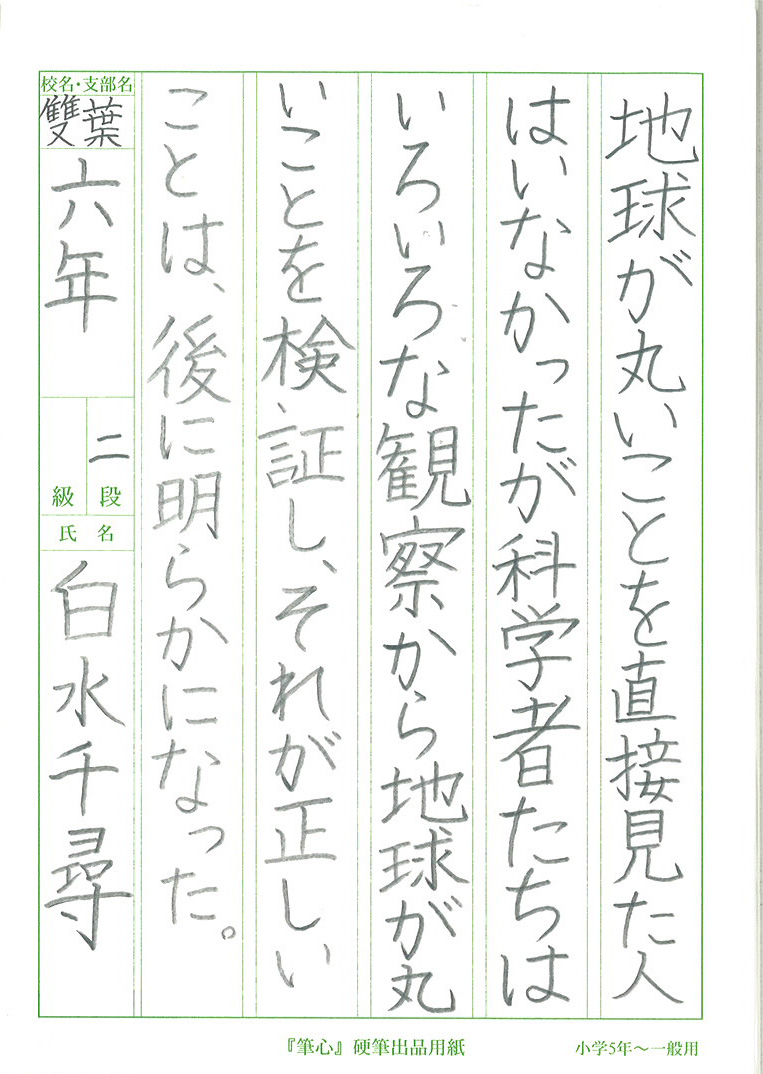 地球が丸いことを直接見た人
はいなかったが科学者たちは
いろいろな観察から地球が丸
いことを検証し、それが正しい
ことは、後に明らかになった。
校名・支部名
雙葉
六年
二段
級
氏名
白水千尋
『筆心』硬筆出品用紙
小学5年～一般用